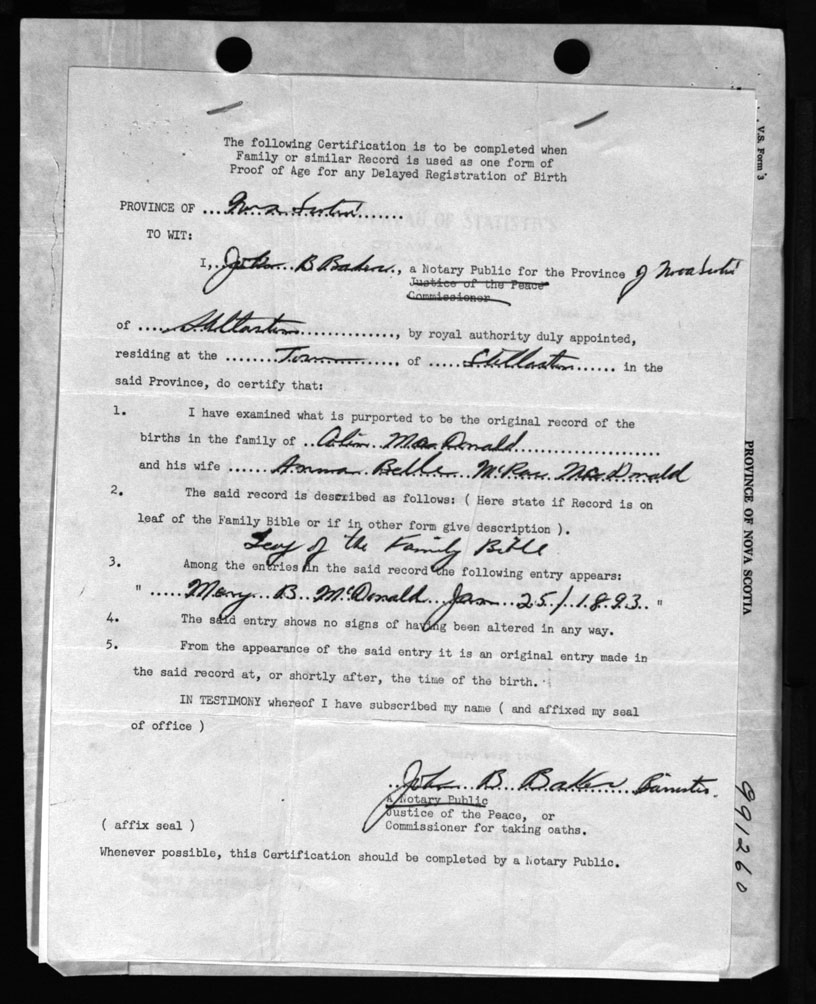 V.S. Form 3
The following Certification is to be completed when
Family or similar Record is used as one form of
Proof of Age for any Delayed Registration of Birth
PROVINCE OF ...Nova Scotia.......
TO WIT:
I,..John..B Baker.., a Notary Public for the Province of Nova Scotia
Justice of the Peace
Commissioner
of ....Stellarton..............., by royal authority duly appointed,
residing at the ........Town........., of .....Stellarton...... in the
said Province, do certify that:
1. I have examined what is purported to be the original record of the
births in the family of ..Colin..MacDonald......................
and his wife ......Anna..Belle..McRae..MacDonald
2. The said record is described as follows: ( Here state if Record is on
leaf of the Family Bible or if in other form give description ).
Leaf of the Family Bible
3. Among the entries in the said record the following entry appears:
" .....Mary...B..McDonald..Jan...25/..1893.. "
4. The said entry shows no signs of having been altered in any way.
5. From the appearance of the said entry it is an original entry made in
the said record at, or shortly after, the time of the birth.
IN TESTIMONY whereof I have subscribed my name ( and affixed my seal
of office )
..John...B...Baker.....Barrister.
A Notary Public
Justice of the Peace, or
Commissioner for taking oaths.
( affix seal )
Whenever possible, this Certification should be completed by a Notary Public.
PROVINCE OF NOVA SCOTIA
991260